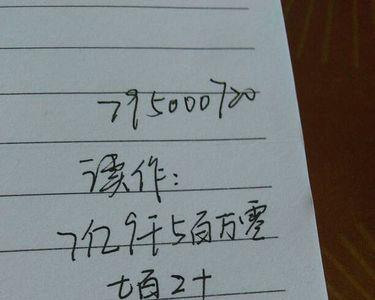 795000720
读作:
7亿9千5百万零
七百2十